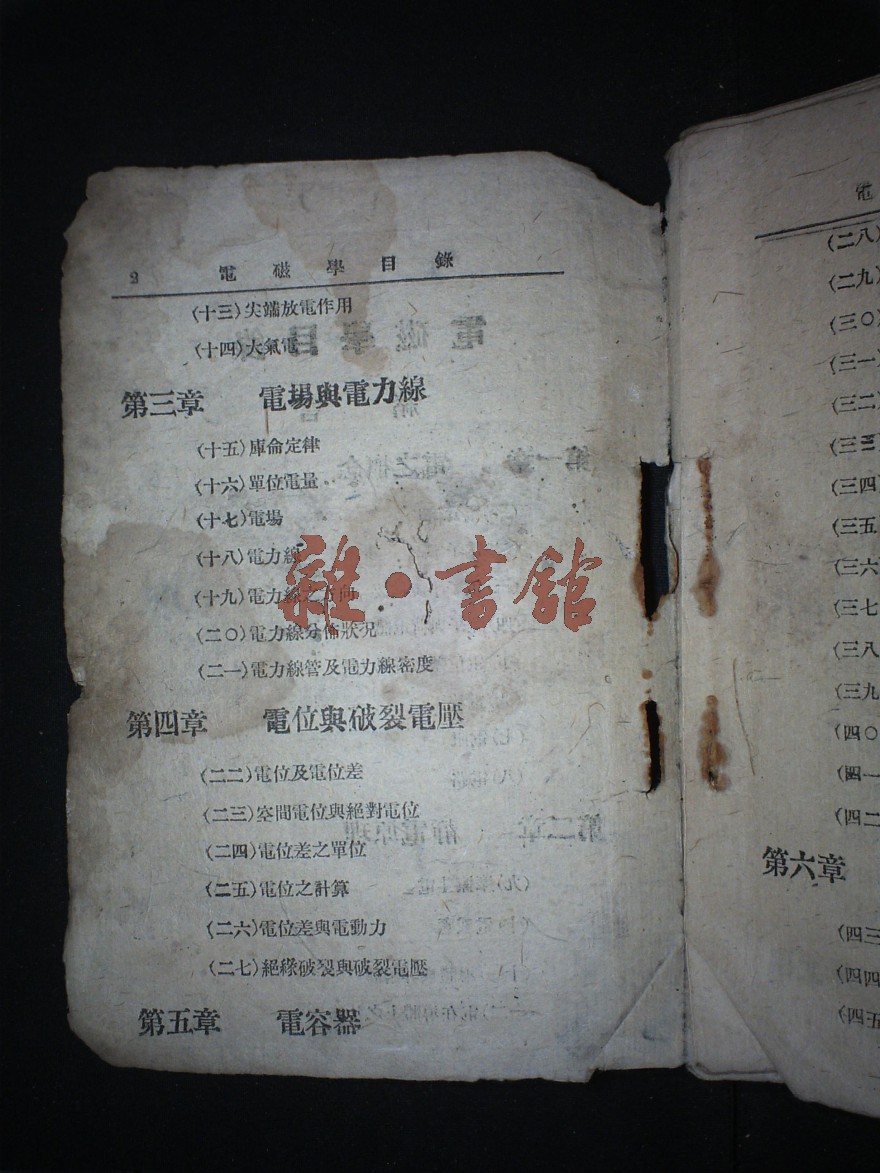 2 電磁學目錄
(十三)尖端放電作用
(十四)大氣電
第三章 電場與電力線
(十五)庫侖定律
(十六)單位電量
(十七)電場
(十八)電力線
(十九)電力線之方向
(二〇)電力線分佈狀況
(二一)電力線管及電力線密度
第四章 電位與破裂電壓
(二二)電位及電位差
(二三)空間電位與絕對電位
(二四)電位差之單位
(二五)電位之計算
(二六)電位差與電動力
(二七)絕緣破裂與破裂電壓
第五章 電容器
雜·書館
電
(二八)
(二九)
(三〇)
(三一
(三二
(三三
(三四
(三五
(三六
(三七
(三八
(三九
(四〇
(四一
(四二
第六章
(四三
(四四
(四五